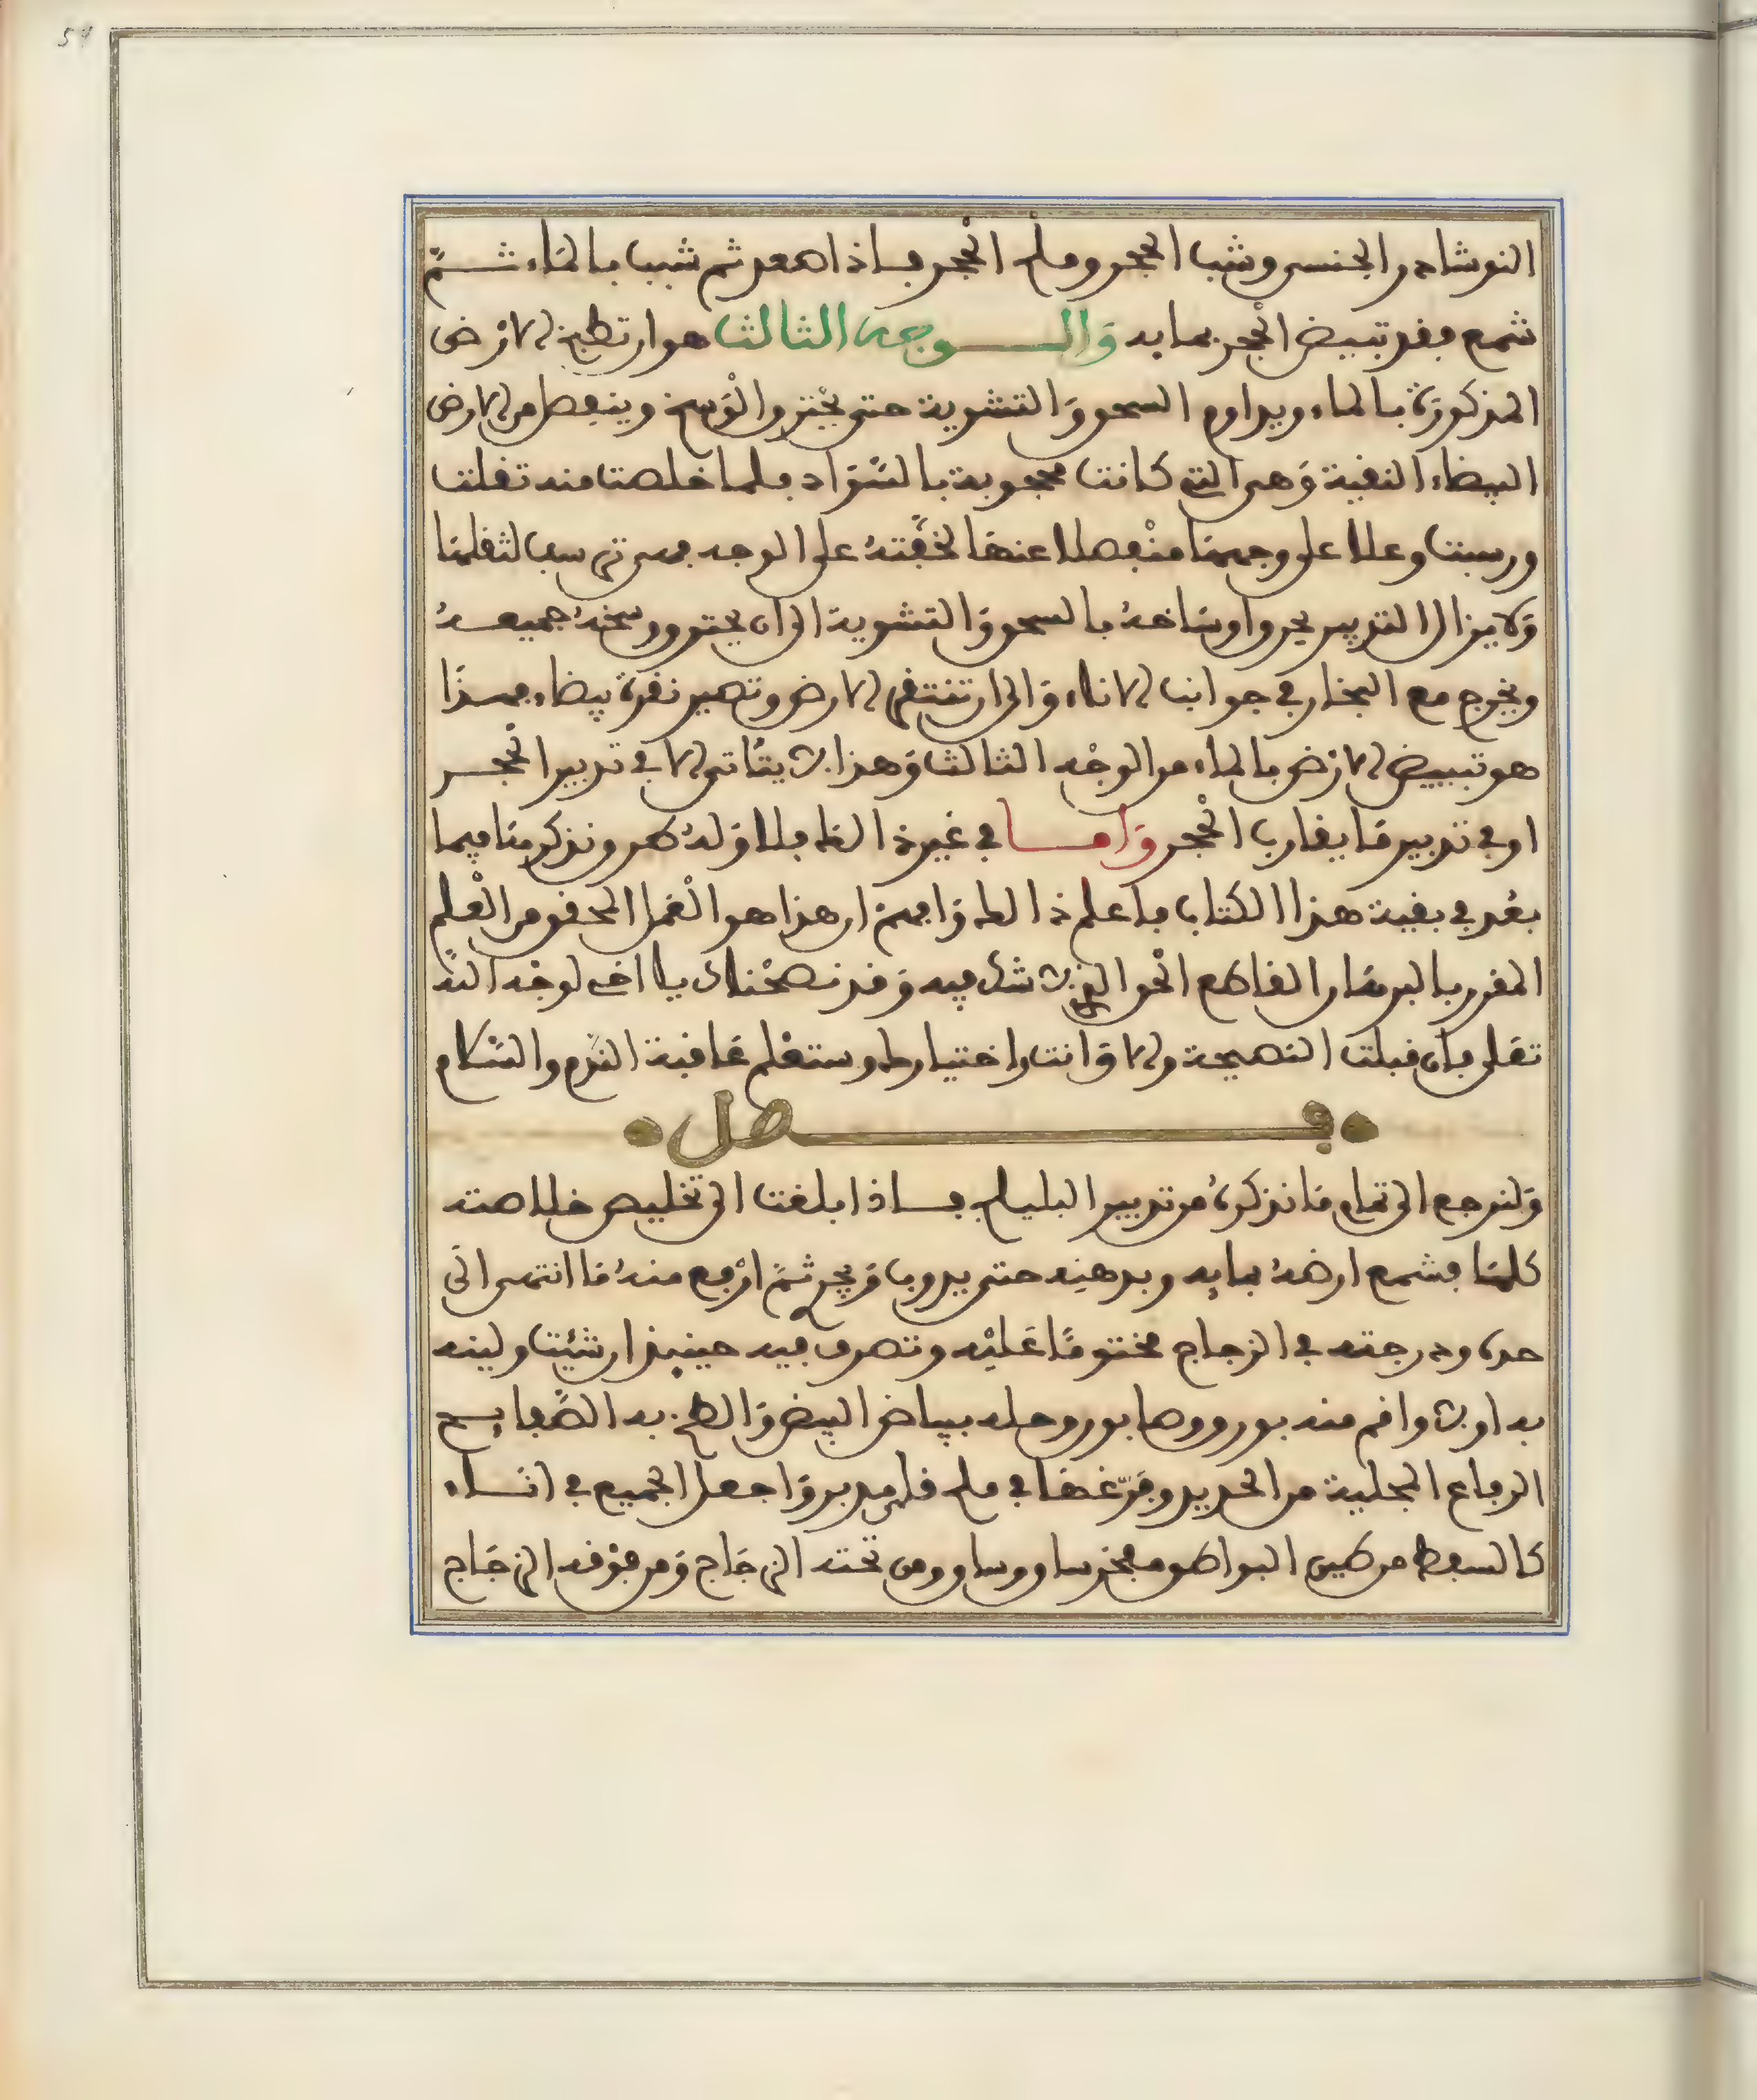 النوشادر الجنس وشب الحجر وملح الحجر فاذا صعد ثم شبب بالماء ثم
شمع فقد تبيض الحجر بمايه وَالوجه الثالث هو ان تطبخ الارض
المذكورة بالماء ويداوم السحق وَالتشوية حتى يحترق الوَسخ وينفصل من الارض
البيضاء النقية وَهي التي كانت محجوبة بالسَّوَاد فلما خلصت منه ثقلت
ورسبت وعلا على وجهها منْفصلا عنها لخفَّته على الوجه فهي ترسب لثقلها
وَلا يزال التدبير يحرق اوساخهُ بالسحق وَالتشوية الى ان يحترق وسخهُ جميعهُ
ويخرج مع البخار في جوانب الاناء وَالى ان تنتقى الارض وتصير نقرة بيضاء فهذَا
هو تبييض الارْض بالماء من الوجْه الثالث وَهذا لا يتأتى الا في تدبير الحْجر
او في تدبير مَا يقارب الحْجر وَاما في غير ذالك فلا وَلهُ طرق نذكرهَا فيما
بعْد في بقية هذا الكتاب فاعلم ذالك وَافهم ان هذا هو العْمَل المحقق من العْلم
المقرر بالبرهَان القاطع الحْق الذي لا شك فيه وَقد نصحْناك يا اخي لوجْه الله
تعَلى فان قبلت النصيحة والا وَانت واختيارك وستعْلم عَاقبة النَّدم والسَّلام
• فصل •
وَلنرجع الى تمام مَا نذكرهُ من تدبير البليلج فاذا بلغت الى تخليص خلاصته
كلهَا فشمع ارضهُ بمايه وبدهنِه حتى يذوب وَيجر ثمَّ ارْفع منهُ مَا انتهى الَى
حده ودرجته في الزجاج مختومًا عَليْه وتصرف فيه حينيذ ان شئيت ولينه
به اولا واقم منه بورق وصابور وحله ببياض البيض وَالطخ به الصَّفايح
الرقاع المجلية من الحديد وفرّغهَا في ملح قلي مدبر وَاجعل الجميع في اناء
كالسفط من طين البواطق مفخر ساو وساو ومن تحته الزجَاج وَمن فوْقه الزجَاج